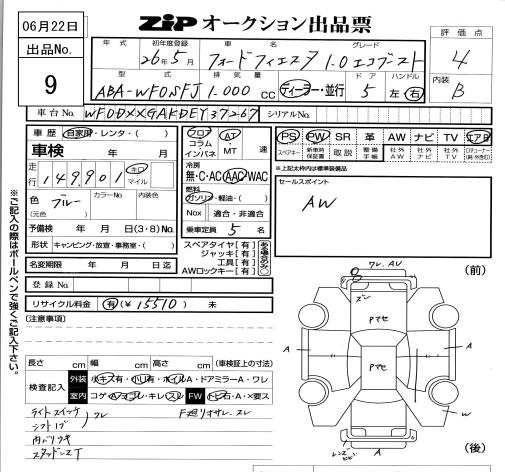 06月22日
ZiP オークション出品票
出品No.
9
年式 初年度登録 車名 グレード
26年5月 フォードフィエスタ 1.0エコブースト
評価点
4
内装
B
型式 排気量 ドア ハンドル
ABA-WF0SFJ 1.000 cc ディーラー・並行 5 左 右
車台No. WF0DXXGAKDEY37267 シリアルNo.
車歴 自家用・レンタ・( )
車検 年 月
走行 149,901 キロ マイル
色 ブルー カラーNo. 内装色
(元色)
予備検 年 月 日(3・8)No.
形状 キャンピング・放宣・事務室・( )
名変期限 年 月 日迄
登録No.
リサイクル料金 有(¥15510) 未
フロア コラム インパネ AT・MT 速
冷房
無・C・AC AAC WAC
燃料
ガソリン・軽油・( )
Nox 適合・非適合
乗車定員 5 名
スペアタイヤ[有]
ジャッキ[有]
工具[有]
AWロックキー[有]
PS PW SR 革 AW ナビ TV エアB
スペアキー 新車時保証書 取説 整備手帳 社外AW 社外ナビ 社外TV
※上記太枠内は標準装備品
セールスポイント
AW
[注意事項]
長さ cm 幅 cm 高さ cm (車検証上の寸法)
検査記入 外装 小キズ有・小凹有・ホイルA・ドアミラーA・ワレ
室内 コゲA・ヨゴレ・キレ・スレ FW トビ石・A・×要ス
ライトスイッチ
シフトノブ スレ
内バリキ
スタッドレスT
F廻りすりレ、スレ
※ご記入の際はボールペンで強くご記入下さい。
(前)
ワレ、AU
ズレ
Pマセ
Pマセ
A
A
A
W
(後)